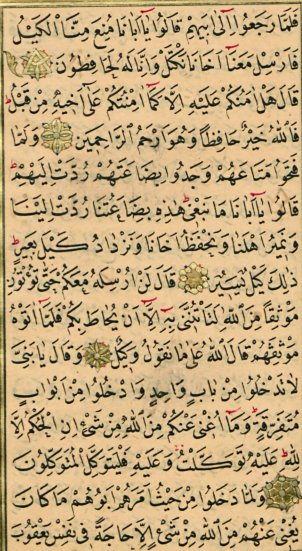 فَلَمَّا رَجَعُوا إِلَى أَبِيهِمْ قَالُوا يَا أَبَانَا مُنِعَ مِنَّا الْكَيْلُ
فَأَرْسِلْ مَعَنَا أَخَانَا نَكْتَلْ وَإِنَّا لَهُ لَحَافِظُونَ
قَالَ هَلْ آمَنُكُمْ عَلَيْهِ إِلَّا كَمَا أَمِنْتُكُمْ عَلَى أَخِيهِ مِنْ قَبْلُ
فَاللَّهُ خَيْرٌ حَافِظًا وَهُوَ أَرْحَمُ الرَّاحِمِينَ وَلَمَّا
فَتَحُوا مَتَاعَهُمْ وَجَدُوا بِضَاعَتَهُمْ رُدَّتْ إِلَيْهِمْ
قَالُوا يَا أَبَانَا مَا نَبْغِي هَذِهِ بِضَاعَتُنَا رُدَّتْ إِلَيْنَا
وَنَمِيرُ أَهْلَنَا وَنَحْفَظُ أَخَانَا وَنَزْدَادُ كَيْلَ بَعِيرٍ
ذَلِكَ كَيْلٌ يَسِيرٌ قَالَ لَنْ أُرْسِلَهُ مَعَكُمْ حَتَّى تُؤْتُونِ
مَوْثِقًا مِنَ اللَّهِ لَتَأْتُنَّنِي بِهِ إِلَّا أَنْ يُحَاطَ بِكُمْ فَلَمَّا آتَوْهُ
مَوْثِقَهُمْ قَالَ اللَّهُ عَلَى مَا نَقُولُ وَكِيلٌ وَقَالَ يَا بَنِيَّ
لَا تَدْخُلُوا مِنْ بَابٍ وَاحِدٍ وَادْخُلُوا مِنْ أَبْوَابٍ
مُتَفَرِّقَةٍ وَمَا أُغْنِي عَنْكُمْ مِنَ اللَّهِ مِنْ شَيْءٍ إِنِ الْحُكْمُ إِلَّا
لِلَّهِ عَلَيْهِ تَوَكَّلْتُ وَعَلَيْهِ فَلْيَتَوَكَّلِ الْمُتَوَكِّلُونَ
وَلَمَّا دَخَلُوا مِنْ حَيْثُ أَمَرَهُمْ أَبُوهُمْ مَا كَانَ
يُغْنِي عَنْهُمْ مِنَ اللَّهِ مِنْ شَيْءٍ إِلَّا حَاجَةً فِي نَفْسِ يَعْقُوبَ